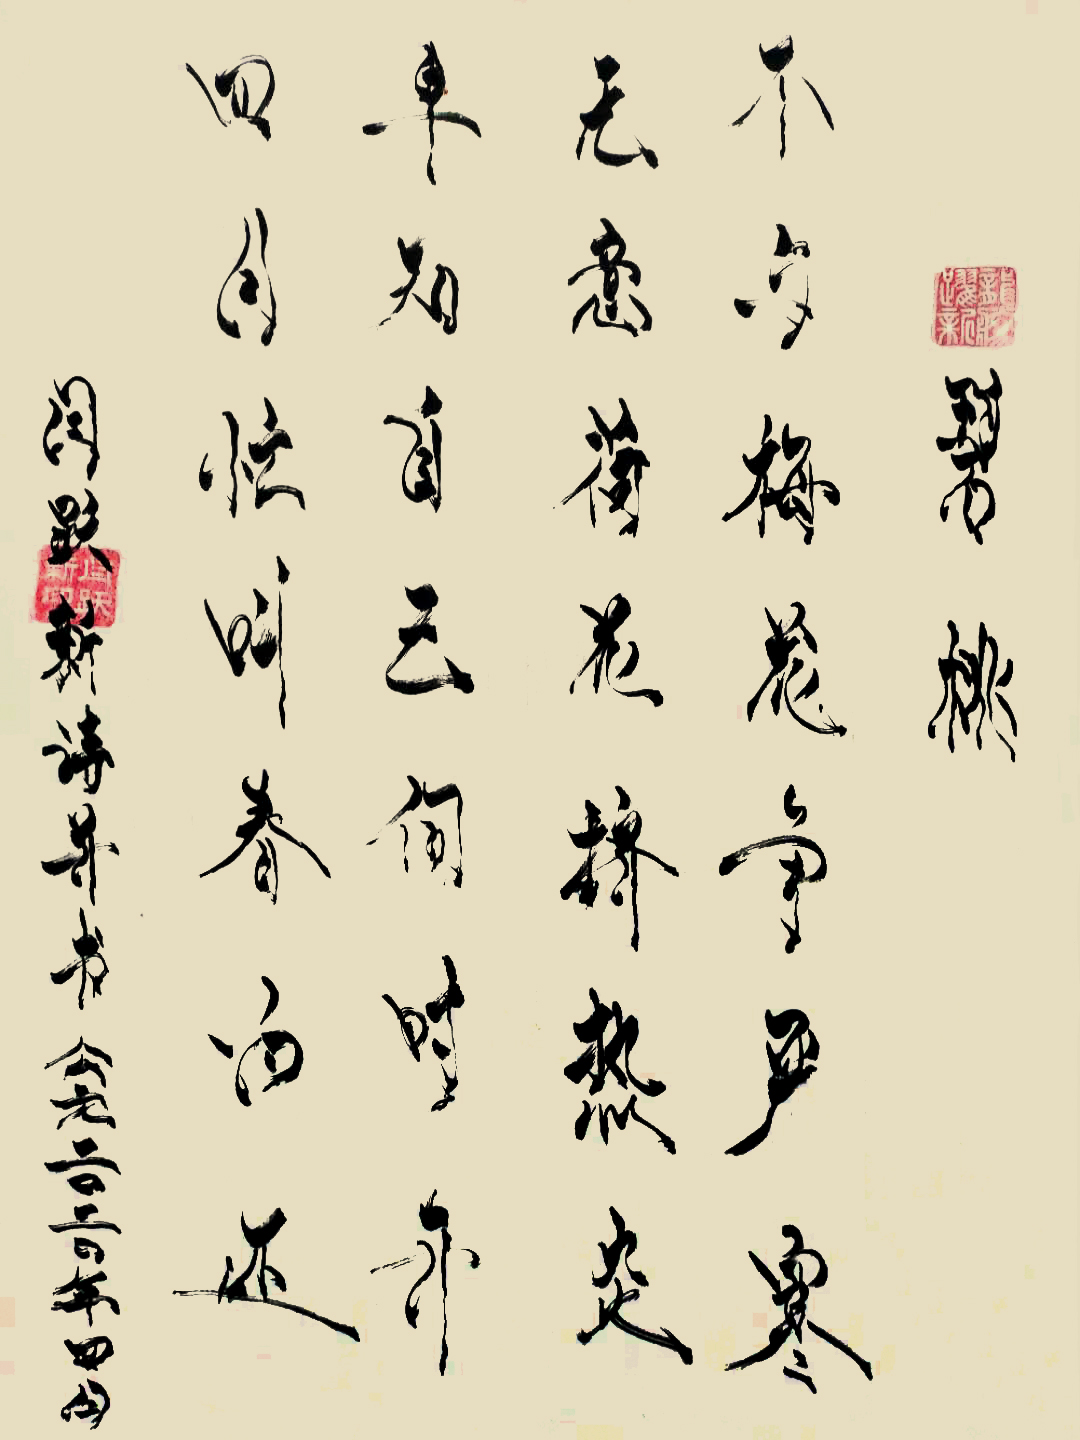 碧桃
不与梅花争严寒
无意荷花择热炎
早知自己何时开
四月忙叫春雨还
闫跃新诗并书 公元二〇二四年四月